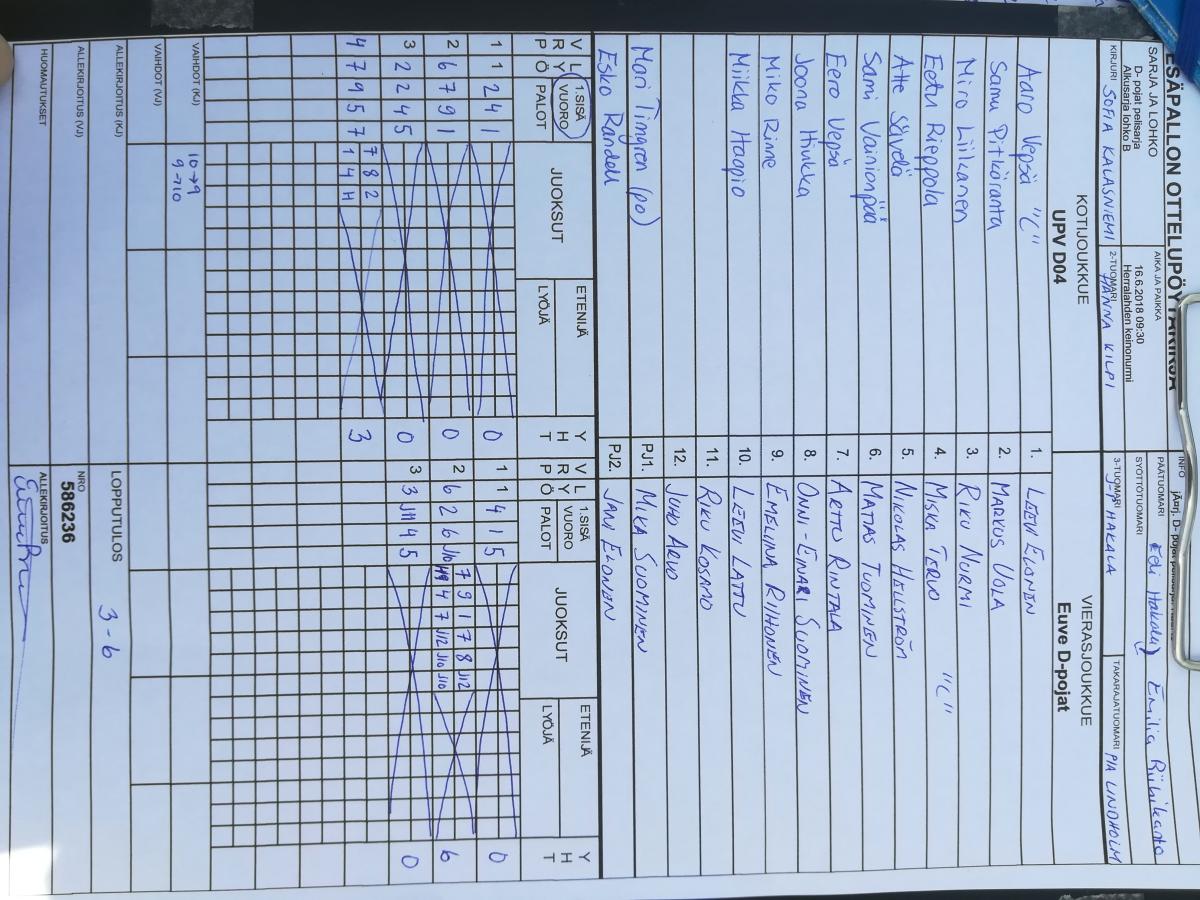 ESÄPALLON OTTELUPÖYTÄKIRJA
SARJA JA LOHKO
D- pojat pelisarja
Alkusarja lohko B
AIKA JA PAIKKA
16.6.2018 09:30
Herralahden keinonurmi
INFO
PÄÄTUOMARI Edi Hakala
SYÖTTÖTUOMARI
KIRJURI SOFIA KALASNIEMI
2-TUOMARI HANNA KILPI
3-TUOMARI J-P HAKALA
TAKARAJATUOMARI PIA LINDHOLM
KOTIJOUKKUE
UPV D04
VIERASJOUKKUE
Euve D-pojat
Aaro Vepsä "C" 1. LEEVI ELONEN
Samu Pitkäranta 2. MARKUS UOLA
Miro Liikanen 3. RIKU NURMI
Eetu Rieppola 4. MISKA TERVO "C"
Atte Sävelä 5. NIKOLAS HELLSTRÖM
Sami Vainionpää 6. MATIAS TUOMINEN
Eero Vepsä 7. ARTTU RINTALA
Joona Hiukka 8. ONNI-EINARI SUOMINEN
Miko Rinne 9. EMELIINA RIIHONEN
Miikka Haapio 10. LEEVI LATTU
11. RIKU KOSAMO
12. JUHO ARVO
Mari Timgren (po) PJ1. MIKA SUOMINEN
Esko Randell PJ2. JANI ELONEN
V L 1.SISÄ JUOKSUT ETENIJÄ Y V L 1.SISÄ JUOKSUT ETENIJÄ Y
R Y VUORO H R Y VUORO H
P Ö PALOT LYÖJÄ T P Ö PALOT LYÖJÄ T
1 1 2 4 1 0 1 1 4 1 5 0
2 6 7 9 1 0 2 6 2 6 J10 7 9 1 7 8 J12 6
H9 4 7 J12 J10 J10
3 2 2 4 5 0 3 3 J11 4 5 0
4 7 9 5 7 7 8 2 3
1 4 H
VAIHDOT (KJ) 10→9
9→10
VAIHDOT (VJ)
ALLEKIRJOITUS (KJ)
LOPPUTULOS 3-6
ALLEKIRJOITUS (VJ)
NRO
586236
HUOMAUTUKSET
ALLEKIRJOITUS